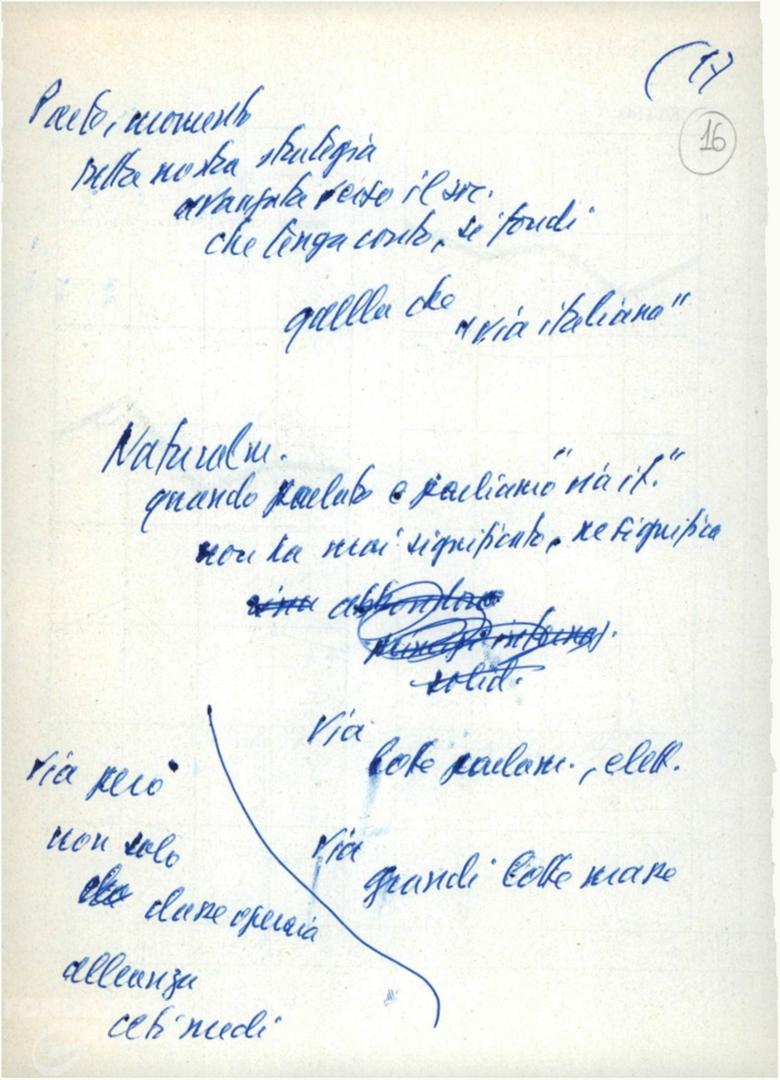 (17
16
Patto, momento
della nostra strategia
avanzata verso il soc.
che tenga conto, si fondi
quella che "via italiana"
Naturalm.
quando parlato e parliamo "via it."
non ha mai significato, né significa
abbandono
solid.
Via
lotte parlam., elett.
Via
grandi lotte masse
Via però
non solo
classe operaia
alleanza
ceti medi